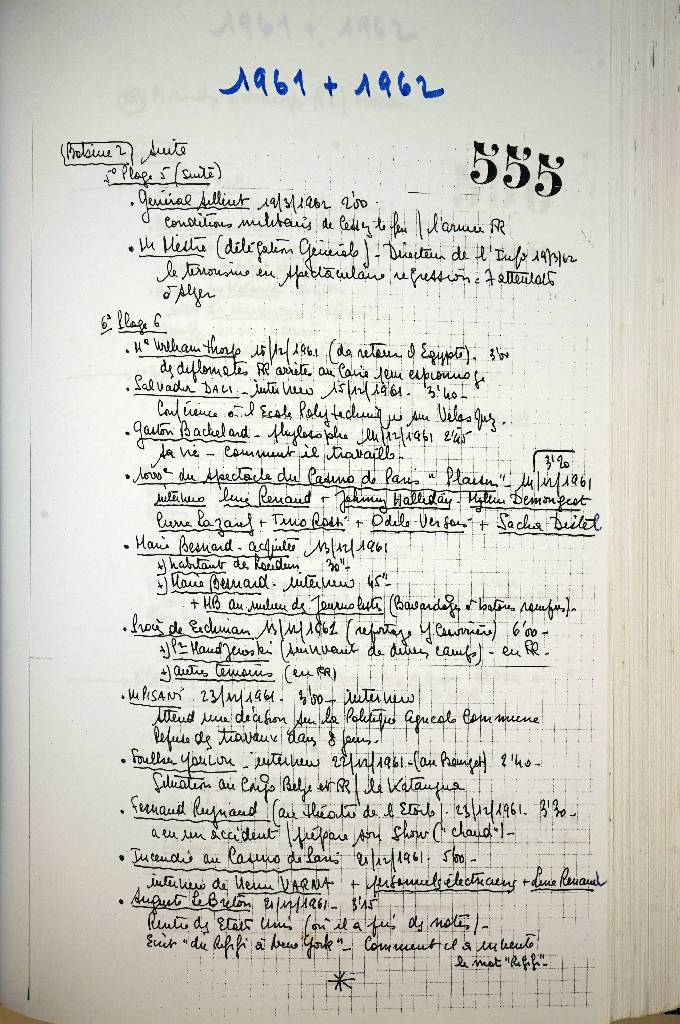 1961 + 1962
555
Bobine 2 Suite
5° Plage 5 (suite)
• Général Ailleret 19/3/1962 2'00
conditions militaires de Cessez le feu / l'armée FR
• M Mestre (délégation Générale) - Directeur de l'Info 19/3/62
le terrorisme en spectaculaire regression = 7 attentats
à Alger
6° Plage 6
• William Thorp 15/12/1961 (de retour d'Egypte). 3'00
des diplomates FR arrêtés au Caire pour espionnage
• Salvador DALI - interview 15/12/1961 - 3'40 -
Conférence à l'Ecole Polytechnique sur Velasquez.
• Gaston Bachelard - phylosophe 14/12/1961 2'45
Sa vie - comment il travaille -
3'20
• 1000e du spectacle du Casino de Paris "Plaisir" - 14/12/1961
interview Line Renaud + Johnny Halliday - Mylène Demongeot
Pierre Lazareff + Tino Rossi + Odile Versois + Sacha Distel
• Marie Besnard - acquittée 13/12/1961
+) habitant de Loudun 30"-
+) Marie Besnard - interview 45"-
+ MB au milieu des Journalistes (Bavardages à bâtons rompus) -
• Procès de Eichman 13/12/1961 (reportage Y Courrière) 6'00 -
+) (survivant de divers camps) - en FR -
+) autres temoins (en FR)
• M PISANI 23/12/1961 - 3'00 - interview
Attend une décision sur la Politique Agricole Commune
Refuse des travaux dans 8 jours -
• Foulbert Youlou - interview 22/12/1961 - (au Bourget) 2'40 -
Situation au Congo Belge et FR / le Katangua
• Fernand Raynaud (au théâtre de l'Etoile). 23/12/1961 - 3'30 -
a eu un accident / prépare son Show ("chaud") -
• Incendie au Casino de Paris 21/12/1961 - 5'00 -
interview de Henri VARNA + personnels électriciens + Line Renaud
• Auguste Le Breton 21/12/1961 - 3'15
Rentre des Etats Unis (où il a pris des notes) -
Ecrit "du Rififi à New York" - Comment il a inventé
le mot "Rififi" -